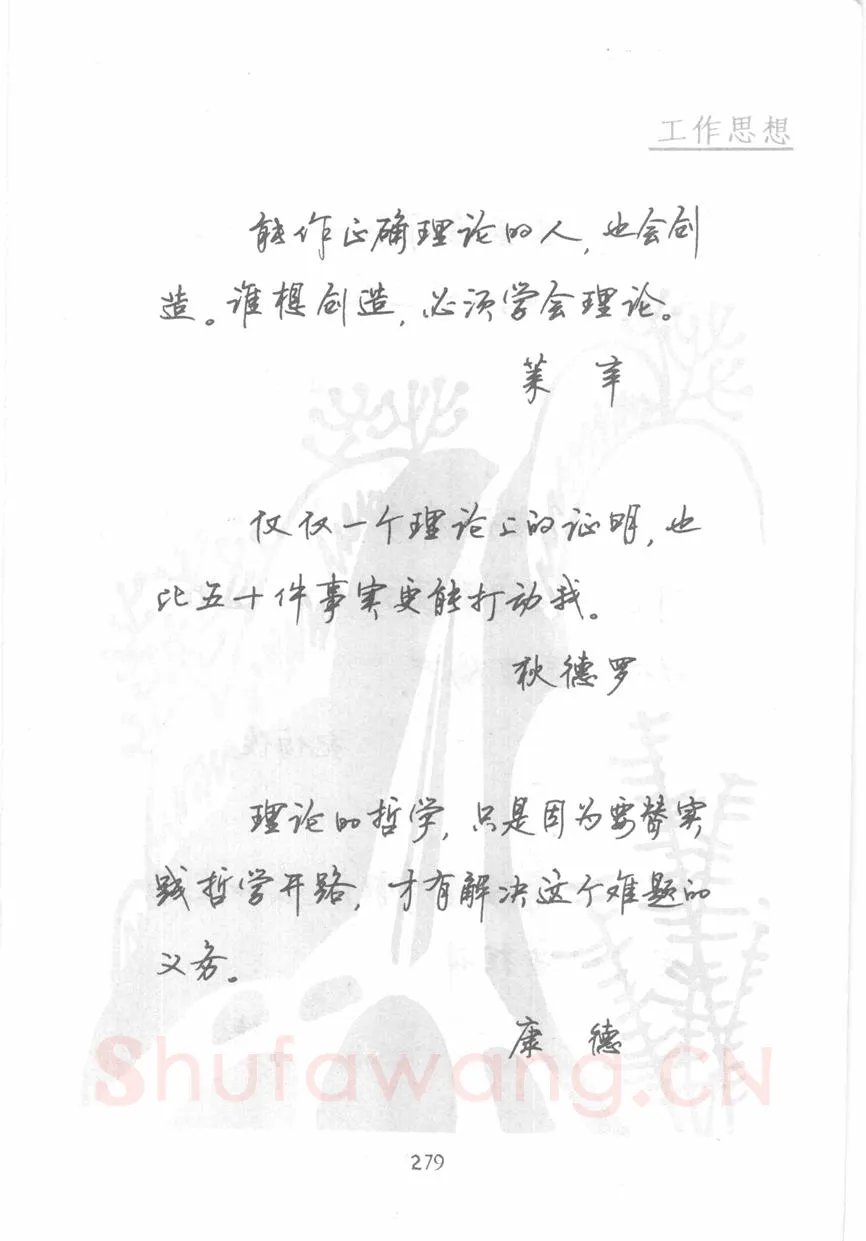 工作思想
能作正确理论的人,也会创
造。谁想创造,必须学会理论。
莱 辛
仅仅一个理论上的证明,也
比五十件事实更能打动我。
狄德罗
理论的哲学,只是因为要替实
践哲学开路,才有解决这个难题的
义务。
康 德
Shufawang.CN
279